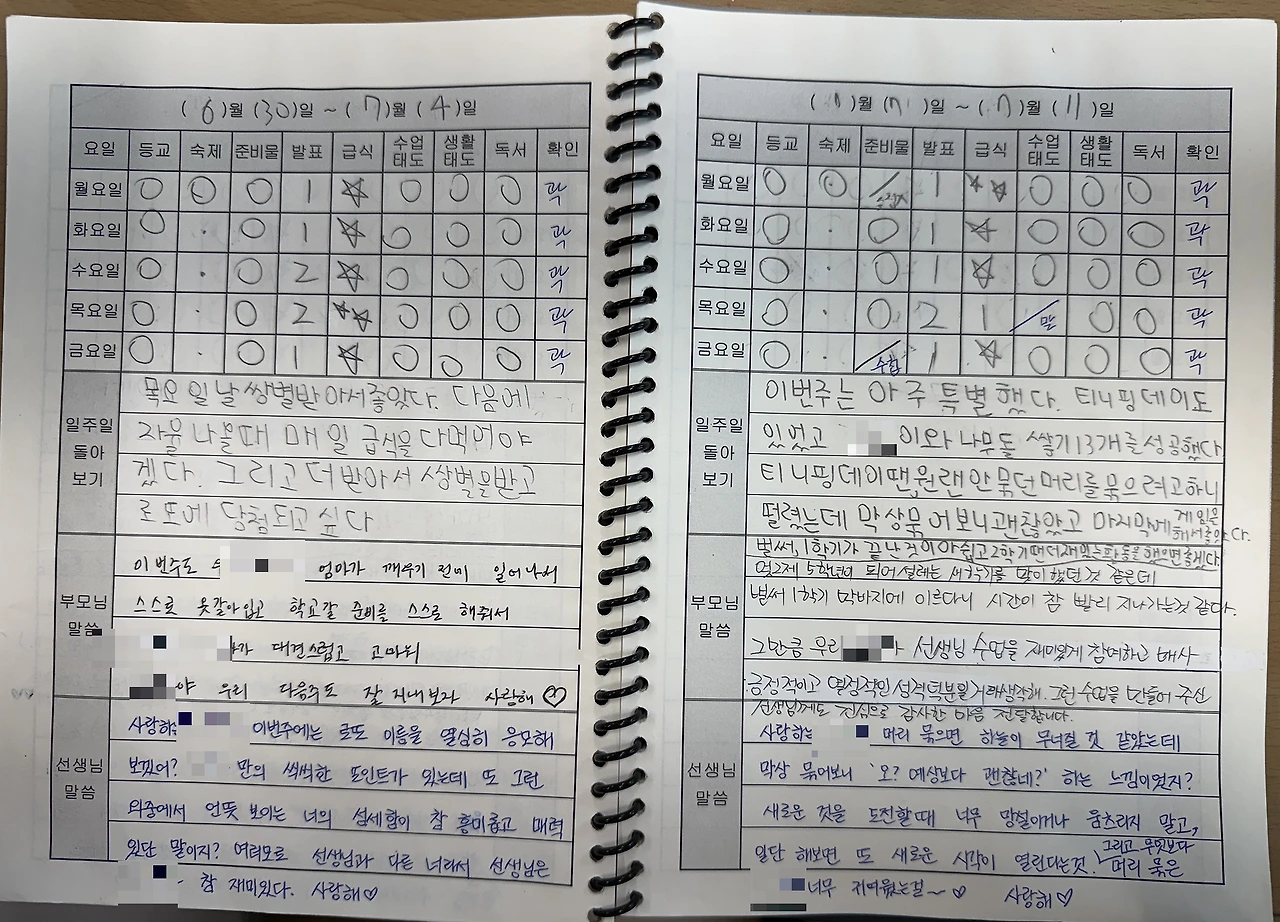 (6)월 (30)일 ~ (7)월 (4)일
요일 등교 숙제 준비물 발표 급식 수업태도 생활태도 독서 확인
월요일 ○ ◎ ○ 1 ☆ ○ ○ ○ 곽
화요일 ○ · ○ 1 ☆ ○ ○ ○ 곽
수요일 ○ · ○ 2 ☆ ○ ○ ○ 곽
목요일 ○ · ○ 2 ☆☆ ○ ○ ○ 곽
금요일 ○ · ○ 1 ☆ ○ ○ ○ 곽
일주일 돌아보기
목요일날 쌍별받아서좋았다. 다음에
자울 나올때 매일 급식을 다먹어야
겠다. 그리고 더받아서 쌍별을받고
로또에 당첨되고 싶다
부모님 말씀
이번주도 엄마가 깨우기 전에 일어나서
스스로 옷갈아입고 학교갈 준비를 스스로 해줘서
가 대견스럽고 고마워
야 우리 다음주도 잘 지내보자 사랑해♡
선생님 말씀
사랑하는 이번주에는 로또 이름을 열심히 응모해
보겠어? 만의 씩씩한 포인트가 있는데 또 그런
와중에서 언뜻 보이는 너의 섬세함이 참 흥미롭고 매력
있단 말이지? 여러모로 선생님과 다른 너라서 선생님은
참 재미있다. 사랑해♡
월 (7)일 ~ (7)월 (11)일
요일 등교 숙제 준비물 발표 급식 수업태도 생활태도 독서 확인
월요일 ○ ◎ / 1 ☆☆ ○ ○ ○ 곽
화요일 ○ · ○ 1 ☆ ○ ○ ○ 곽
수요일 ○ · ○ 1 ☆ ○ ○ ○ 곽
목요일 ○ · ○ 2 1 / 말 ○ ○ 곽
금요일 ○ · / 수학 1 ☆ ○ ○ ○ 곽
일주일 돌아보기
이번주는 아주 특별했다. 티니핑데이도
있었고 이와 나무돌 쌓기 13개를 성공했다
티니핑데이땐, 원랜 안 묶던 머리를 묶으려고하니
떨렸는데 막상묶어보니괜찮았고 마지막에 게임은 해서좋았다.
벌써, 1학기가 끝난것이 아쉽고 2학기때 더 재밌는 활동을 했으면 좋겠다.
부모님 말씀
엊그제 5학년이 되어 설레는 새학기를 맞이했던 것 같은데
벌써 1학기 막바지에 이르다니 시간이 참 빨리 지나가는것 같다.
그만큼 우리 가 선생님 수업을 재미있게 참여하고 매사
긍정적이고 열정적인 성격덕분일거라생각해. 그런 수업을 만들어 주신
선생님께도 진심으로 감사한 마음 전달합니다.
선생님 말씀
사랑하는 머리 묶으면 하늘이 무너질 것 같았는데
막상 묶어보니 '오? 예상보다 괜찮네?' 하는 느낌이었지?
새로운 것을 도전할때 너무 망설이거나 움츠리지 말고,
일단 해보면 또 새로운 시각이 열린다는것. 그리고 무엇보다 머리 묶은
너무 귀여웠는걸~♡ 사랑해♡